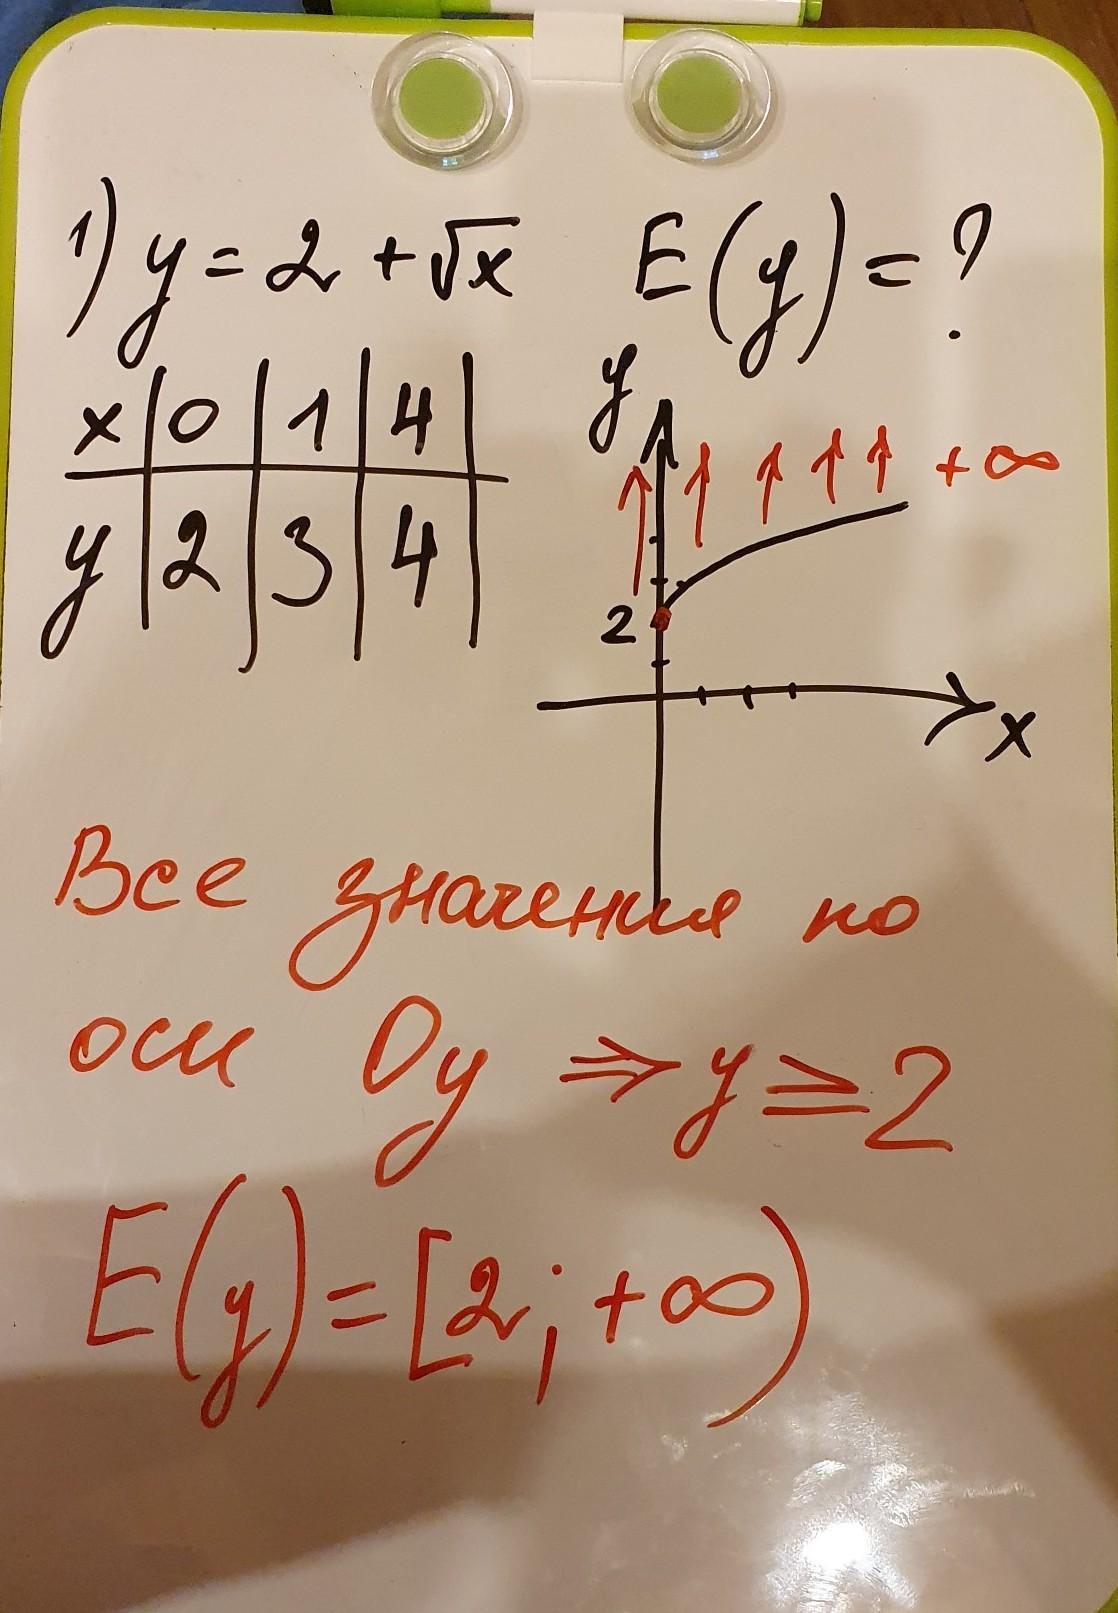 1) y = 2 + √x E(y) = ?
x 0 1 4
y 2 3 4
y
+∞
2
x
Все значения по
оси Oy ⇒ y ≥ 2
E(y) = [2; +∞)